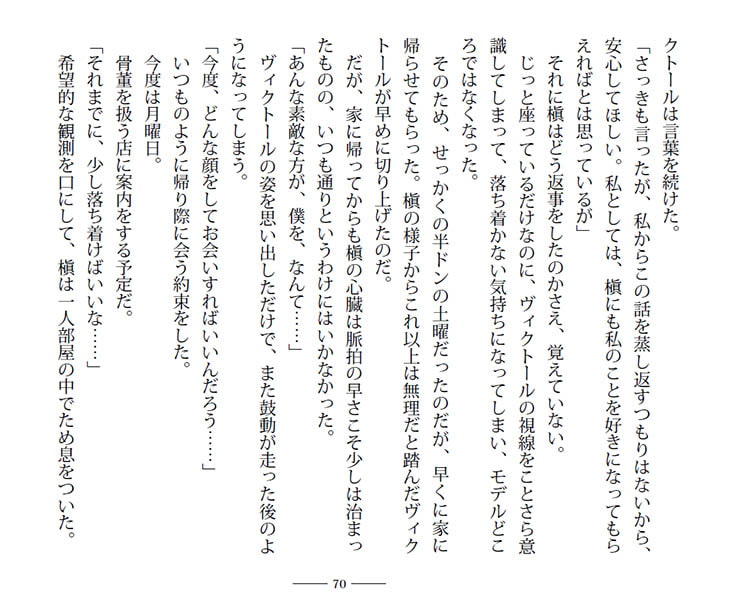 クトールは言葉を続けた。
「さっきも言ったが、私からこの話を蒸し返すつもりはないから、
安心してほしい。私としては、槇にも私のことを好きになってもら
えればとは思っているが」
それに槇はどう返事をしたのかさえ、覚えていない。
じっと座っているだけなのに、ヴィクトールの視線をことさら意
識してしまって、落ち着かない気持ちになってしまい、モデルどこ
ろではなくなった。
そのため、せっかくの半ドンの土曜だったのだが、早くに家に
帰らせてもらった。槇の様子からこれ以上は無理だと踏んだヴィク
トールが早めに切り上げたのだ。
だが、家に帰ってからも槇の心臓は脈拍の早さこそ少しは治まっ
たものの、いつも通りというわけにはいかなかった。
「あんな素敵な方が、僕を、なんて……」
ヴィクトールの姿を思い出しただけで、また鼓動が走った後のよ
うになってしまう。
「今度、どんな顔をしてお会いすればいいんだろう……」
いつものように帰り際に会う約束をした。
今度は月曜日。
骨董を扱う店に案内をする予定だ。
「それまでに、少し落ち着けばいいな……」
希望的な観測を口にして、槇は一人部屋の中でため息をついた。
70